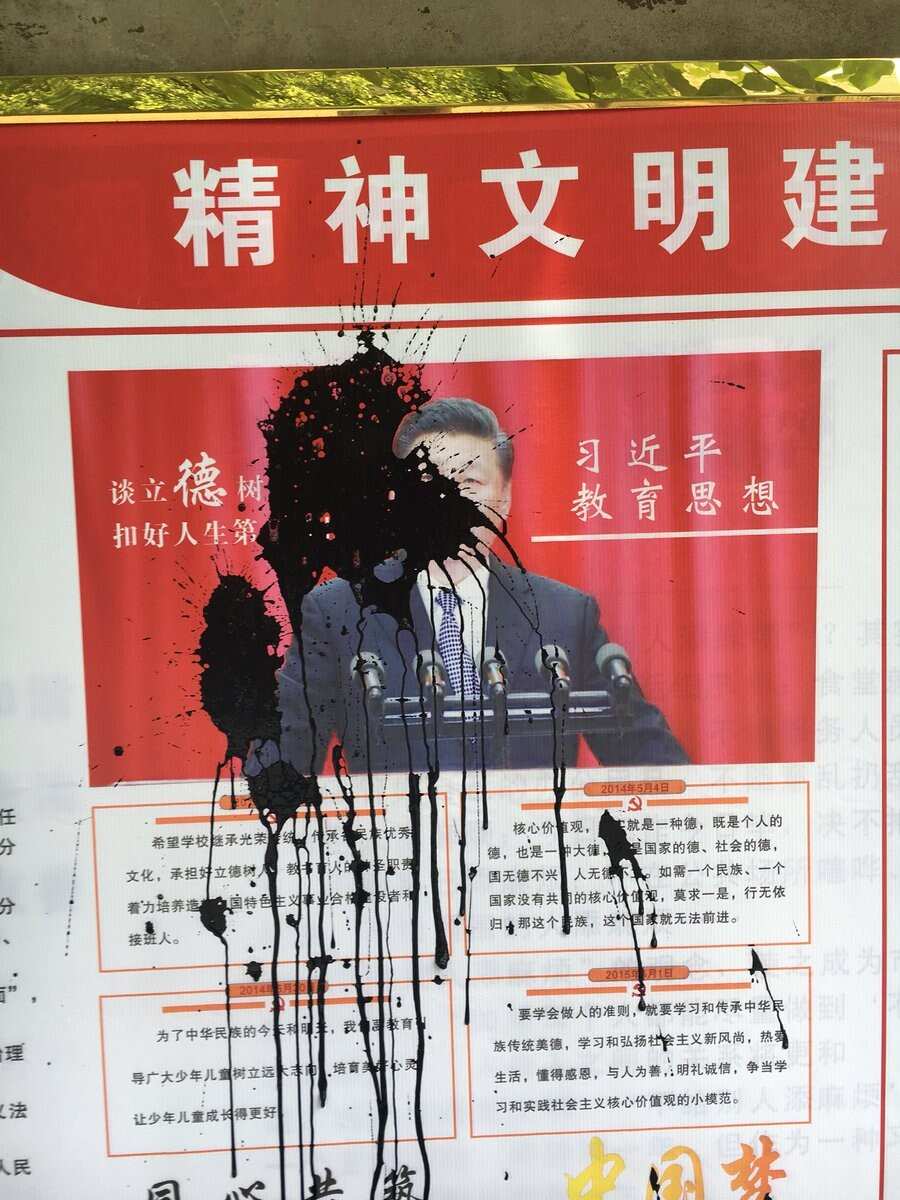 精神文明建
谈立德树
扣好人生第
习近平
教育思想
希望学校继承光荣传统，传承各民族优秀
文化，承担好立德树人、教书育人的神圣职责
着力培养造 国特色主义事业合格建设者和
接班人。
2014年5月4日
核心价值观， 实就是一种德，既是个人的
德，也是一种大德， 是国家的德、社会的德，
国无德不兴，人无德不立。如需一个民族、一个
国家没有共同的核心价值观，莫求一是，行无依
归，那这个民族，这个国家就无法前进。
2014年5月30日
为了中华民族的今天和明天，我们要教育引
导广大少年儿童树立远大志向，培育美好心灵
让少年儿童成长得更好。
2015年6月1日
要学会做人的准则，就要学习和传承中华民
族传统美德，学习和弘扬社会主义新风尚，热爱
生活，懂得感恩，与人为善，明礼诚信，争当学
习和实践社会主义核心价值观的小模范。
同心共筑
中国梦
任
分
分
、
治理
义法
人民